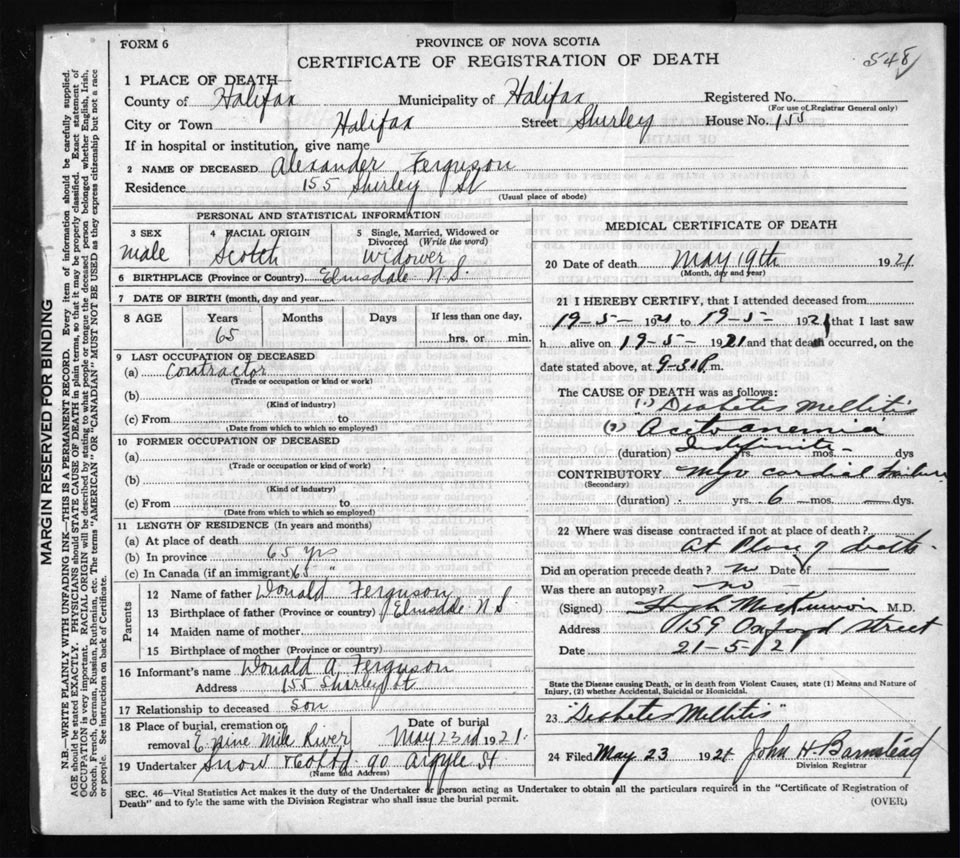 FORM 6
PROVINCE OF NOVA SCOTIA
CERTIFICATE OF REGISTRATION OF DEATH
548
1 PLACE OF DEATH—
County of Halifax Municipality of Halifax Registered No.
(For use of Registrar General only)
City or Town Halifax Street Shirley House No. 155
If in hospital or institution, give name
2 NAME OF DECEASED Alexander Ferguson
Residence 155 Shirley St
(Usual place of abode)
PERSONAL AND STATISTICAL INFORMATION
3 SEX 4 RACIAL ORIGIN 5 Single, Married, Widowed or Divorced (Write the word)
male Scotch Widower
6 BIRTHPLACE (Province or Country) Elmsdale N.S.
7 DATE OF BIRTH (month, day and year)
8 AGE Years Months Days If less than one day,
65 hrs. or min.
9 LAST OCCUPATION OF DECEASED
(a) Contractor
(Trade or occupation or kind or work)
(b)
(Kind of industry)
(c) From to
(Date from which to which so employed)
10 FORMER OCCUPATION OF DECEASED
(a)
(Trade or occupation or kind or work)
(b)
(Kind of industry)
(c) From to
(Date from which to which so employed)
11 LENGTH OF RESIDENCE (In years and months)
(a) At place of death
(b) In province 65 yrs
(c) In Canada (if an immigrant) 65 "
Parents
12 Name of father Donald Ferguson
13 Birthplace of father (Province or country) Elmsdale N S
14 Maiden name of mother
15 Birthplace of mother (Province or country)
16 Informant's name Donald A. Ferguson
Address 155 Shirley St
17 Relationship to deceased son
18 Place of burial, cremation or removal E. nine mile River Date of burial May 23rd 1921.
19 Undertaker Snow & Co Ltd. 90 Argyle St
(Name and Address)
MEDICAL CERTIFICATE OF DEATH
20 Date of death May 19th 1921
(Month, day and year)
21 I HEREBY CERTIFY, that I attended deceased from
19-5- 1921 to 19-5- 1921 that I last saw
h alive on 19-5- 1921 and that death occurred, on the
date stated above, at 9-30 P. m.
The CAUSE OF DEATH was as follows:
(1) Diabetes Mellitis
(2) Acetonemia
(duration) Indefinite yrs. mos. dys
CONTRIBUTORY Myo cardial Failure
(Secondary)
(duration) yrs. 6 mos. dys.
22 Where was disease contracted if not at place of death?
At Place of death.
Did an operation precede death? no Date of
Was there an autopsy? no
(Signed) Hugh MacKinnon M.D.
Address 159 Oxford Street
Date 21-5-21
State the Disease causing Death, or in death from Violent Causes, state (1) Means and Nature of
Injury, (2) whether Accidental, Suicidal or Homicidal.
23 "Diabetes Mellitis"
24 Filed May 23 1921 John H. Barnstead
Division Registrar
SEC. 46—Vital Statistics Act makes it the duty of the Undertaker or person acting as Undertaker to obtain all the particulars required in the "Certificate of Registration of
Death" and to fyle the same with the Division Registrar who shall issue the burial permit.
(OVER)
MARGIN RESERVED FOR BINDING
N.B.—WRITE PLAINLY WITH UNFADING INK—THIS IS A PERMANENT RECORD. Every item of information should be carefully supplied.
AGE should be stated EXACTLY. PHYSICIANS should STATE CAUSE OF DEATH in plain terms, so that it may be properly classified. Exact statement of
OCCUPATION is very important. RACIAL ORIGIN will be described by stating to what people or tongue the deceased person belonged whether English, Irish,
Scotch, French, German, Russian, Ruthenian, etc. The terms "AMERICAN" or "CANADIAN" MUST NOT BE USED as they express citizenship but not a race
or people. See instructions on back of Certificate.